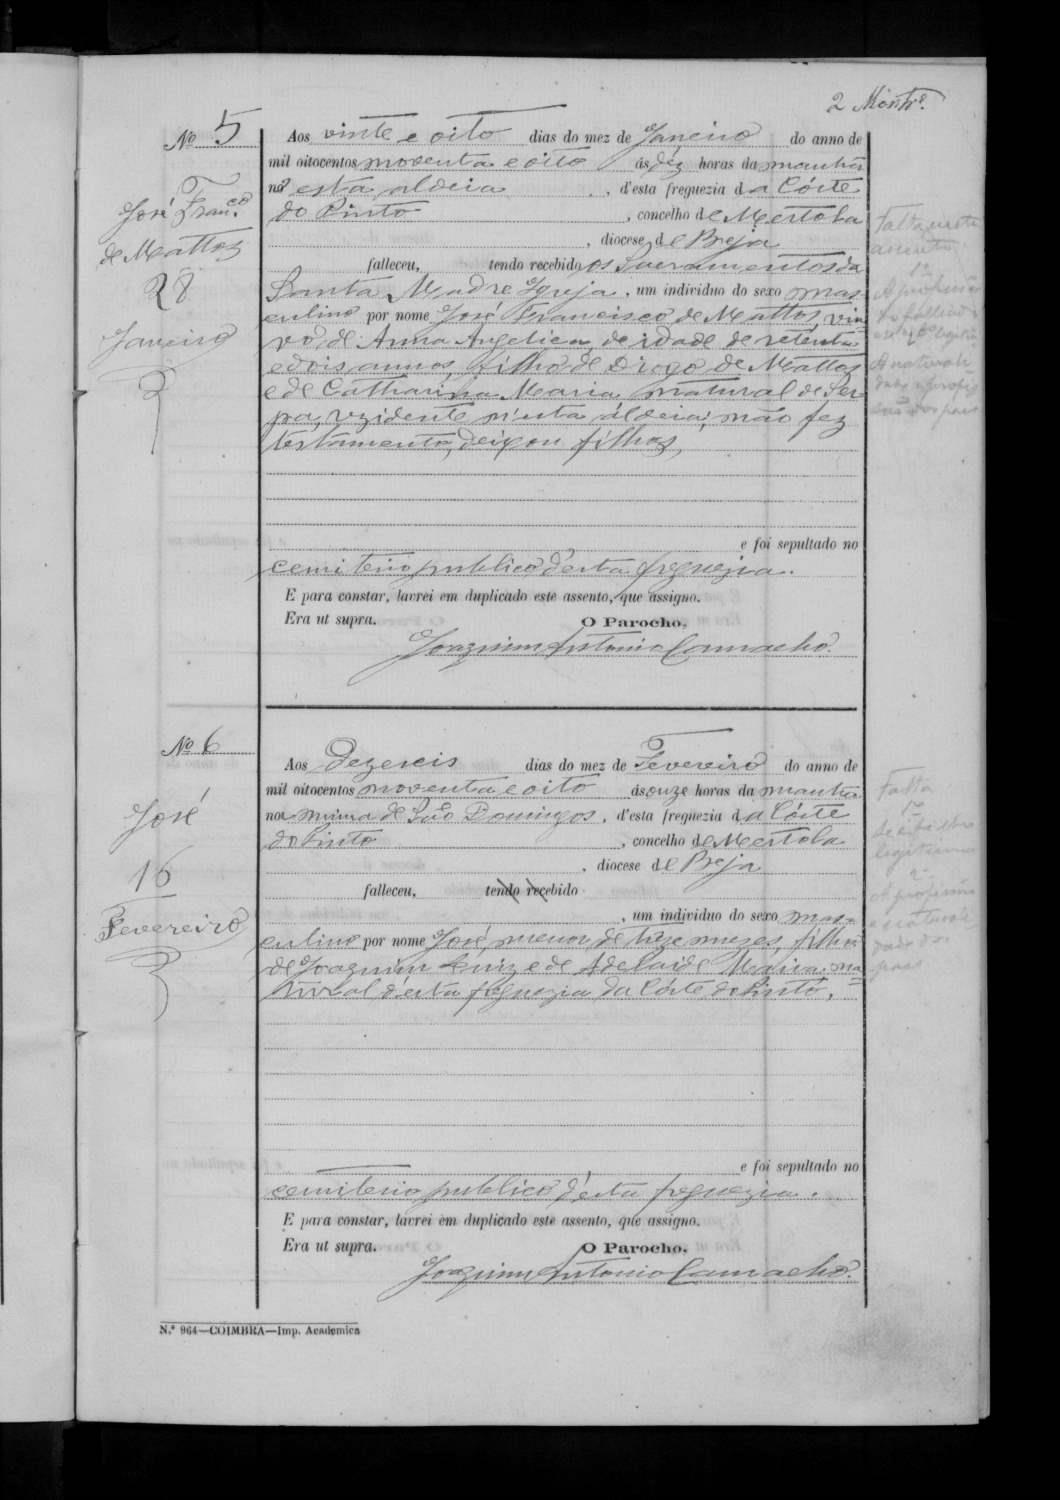 2
Nº 5
José Franco.
de Mattos
28
Janeiro
Aos vinte e oito dias do mez de Janeiro do anno de
mil oitocentos noventa e oito ás dez horas da manhã
n'esta aldeia, d'esta freguezia da Côrte
do Pinto, concelho de Mertola
, diocese de Beja
falleceu, tendo recebido os Sacramentos da
Santa Madre Igreja, um individuo do sexo mas-
culino por nome José Francisco de Mattos, viu-
vo de Anna Angelica, de idade de setenta
e dois annos, filho de Diogo de Mattos
e de Catharina Maria, natural de Ser-
pa, rezidente n'esta aldeia; não fez
testamento, deixou filhos,
e foi sepultado no
cemiterio publico d'esta freguezia.
E para constar, lavrei em duplicado este assento, que assigno.
Era ut supra. O Parocho,
Joaquim Antonio Camacho.
Falta neste
assento
1º
A profissão
do fallecido
A naturali-
dade e profis-
são dos paes
Nº 6
José
16
Fevereiro
Aos Dezeseis dias do mez de Fevereiro do anno de
mil oitocentos noventa e oito ás onze horas da manhã
na mina de São Domingos, d'esta freguezia da Côrte
do Pinto, concelho de Mertola
, diocese de Beja
falleceu, tendo recebido
, um individuo do sexo mas-
culino por nome José, menor de treze mezes, filho
de Joaquim Luiz e de Adelaide Maria, na-
tural d'esta freguezia da Côrte do Pinto,
e foi sepultado no
cemiterio publico d'esta freguezia.
E para constar, lavrei em duplicado este assento, que assigno.
Era ut supra. O Parocho,
Joaquim Antonio Camacho.
Falta
1º
Se é filho
legitimo
2º
A profissão
e naturali-
dade dos
paes
N.º 964—COIMBRA—Imp. Academica